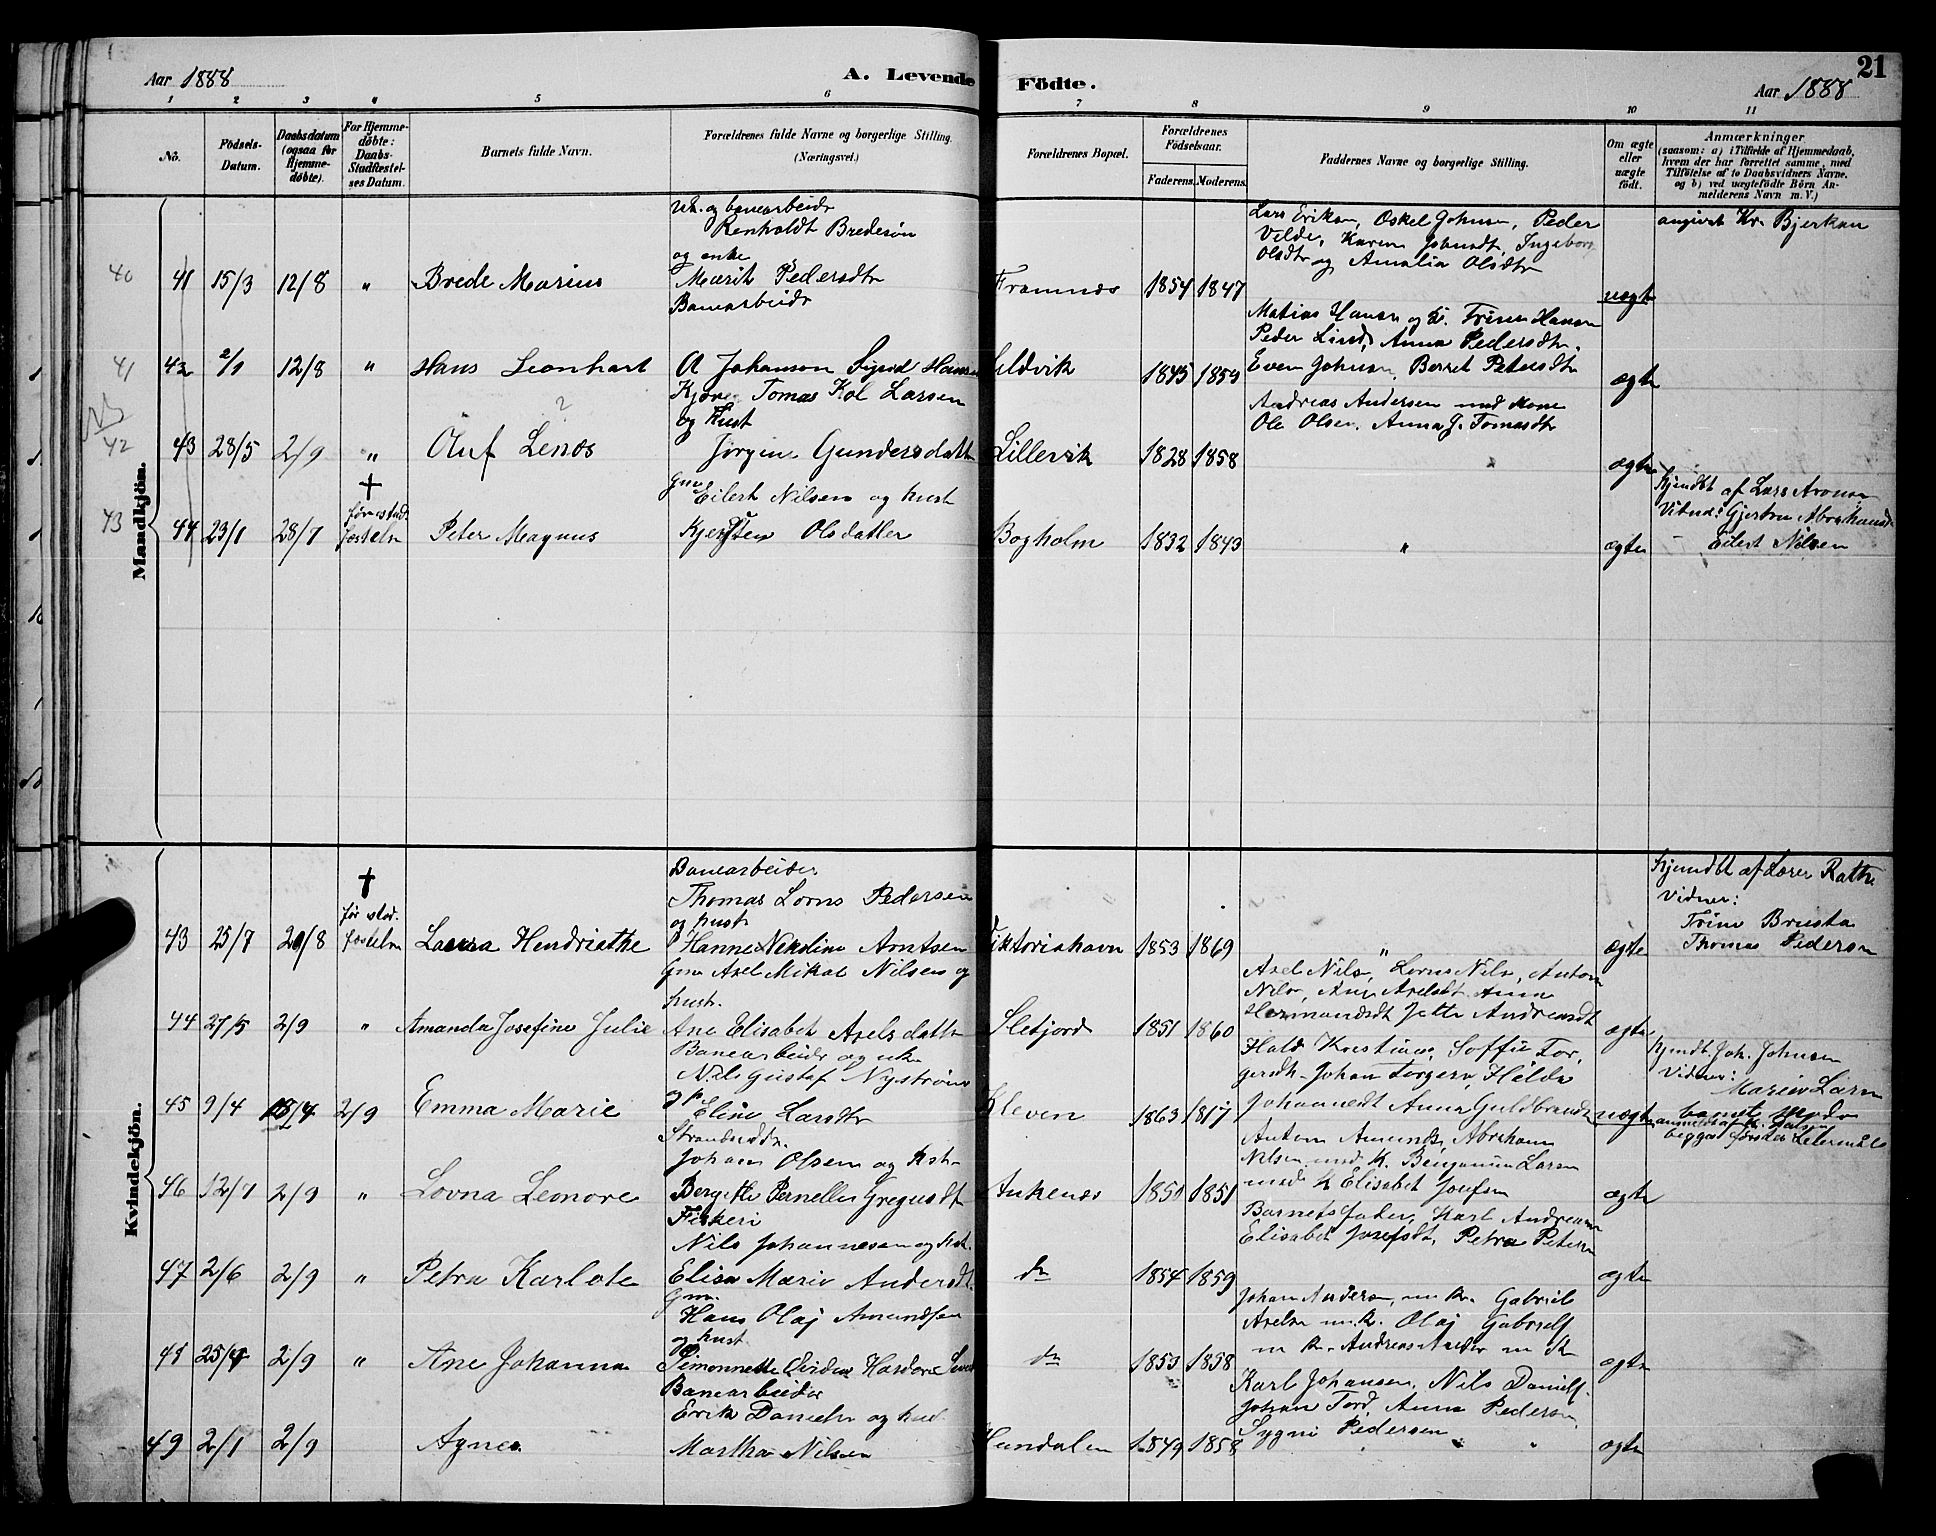 Aar 1888
A. Levende Födte.
21
Aar 1888
1 2 3 4 5 6 7 8 9 10 11
No.
Födsels-Datum.
Daabsdatum (ogsaa for Hjemme-döbte).
For Hjemme-döbte: Daabs-Stadfæstelses Datum.
Barnets fulde Navn.
Forældrenes fulde Navne og borgerlige Stilling. (Næringsvei.)
Forældrenes Bopæl.
Forældrenes Födselsaar.
Faderens. Moderens.
Faddernes Navne og borgerlige Stilling.
Om ægte eller uægte födt.
Anmærkninger
(saasom: a) i Tilfælde af Hjemmedaab, hvem der har forrettet samme, med Tilföielse af to Daabsvidners Navne. og b) ved uægtefödte Börn Anmelderens Navn m.V.)
Mandkjön.
40 41 15/3 12/8 " Brede Marius
uk. og banearbeidr
Renholdt Bredesön
og enke
Marit Pedersdtr
Framnæs 1854 1847
Lars Eriksen, Oskel Johnsen, Peder
Velde, Karen Johnsdt, Ingeborg
Olsdtr og Amalia Olsdtr
uægte
angivet Kr. Bjerkan
41 42 2/1 12/8 " Hans Leonhart
Banearbeidr
A Johanson Sigrid Hansen
Sildvik 1845 1859
Matias Hansen og k. Trine Hansen
Peder Lind, Anna Pedersdtr.
Even Johnsen, Berret Petersdtr
ægte
42 43 28/5 2/9 " Oluf Lenæs
Tomas Kol Larsen
og Hust
Jørgine Gundersdatt
Lillevik 1828 1858
Andreas Andersen med Kone
Ole Olsen, Anna J. Tomasdtr
ægte
43 44 23/1 28/7
† før stad-fæstelse
Peter Magnus
Gmd Eilert Nilsen og hust
Kjersten Olsdatter
Bogholm 1832 1843 " ægte
Hjemdbt af Lars Aronsen
Vidner: Gjertru Abrahamsd
- Eilert Nilsen
Kvindekjön.
43 25/7 20/8
† før stad-fæstelse
Laura Hendriethe
Banearbeider
Thomas Lorns Pedersen
og hust
Hanne Nekoline Arntsen
Viktoriahavn 1853 1869 " ægte
Hjemdbt af Lærer Rathe
Vidner:
Trine Brusta
Thomas Pedersen
44 27/5 2/9 " Amanda Josefine Julie
Gm Axel Mikal Nilsen og
hust.
Ane Elisabet Axelsdattr
Sletjord 1851 1860
Axel Nils, Lorns Nils, Anton
Nils, Ane Axelsdt Anna
Hermandsdt Jette Andreasdt
ægte
45 9/4 15/4 2/9 Emma Marie
Banearbeidr og uk
Nils Gustaf Nyström
og p.
Elise Larsdtr
Kleven 1863 1817
Hald Kristians, Soffie Tor,
gersdtr. Johan Torgers, Hilda
Johannedt Anna Guldbrands
uægte
Hjmdt. Joh. Johnsen
Vidner:
Marius Larsen
barnets moder
46 12/7 2/9 " Lovna Leonore
Strandsiddr.
Johan Olsen og Hst.
Bergitte Pernelle Gregusdt
Ankenæs 1850 1851
Anton Amunds, Abraham
Nilsen med K. Benjamin Larsen
med K Elisabet Josefsen
ægte
47 2/6 2/9 " Petra Karlote
Fiskeri
Nils Johannesen og hst.
Elisa Marie Andersdt.
do 1854 1859
Barnets fader, Karl Andreasen
Elisabet Josefsdt, Petra Petersen
ægte
48 25/4 2/9 " Ane Johanna
Gm.
Hans Olaj Amundsen
og hust.
do 1853 1858
Johan Anders, m k. Gabriel
Axelsen m k. Olaj Gabrielf
m k. Andreas Andr m K
ægte
49 2/1 2/9 Agnes
Banearbeider
Erik Danieln og hust
Martha Nilsen
Hundalen 1849 1858
Karl Johansen, Nils Danielf.
Johan Tord, Anna Pedersen,
Sygni Pedersen
ægte